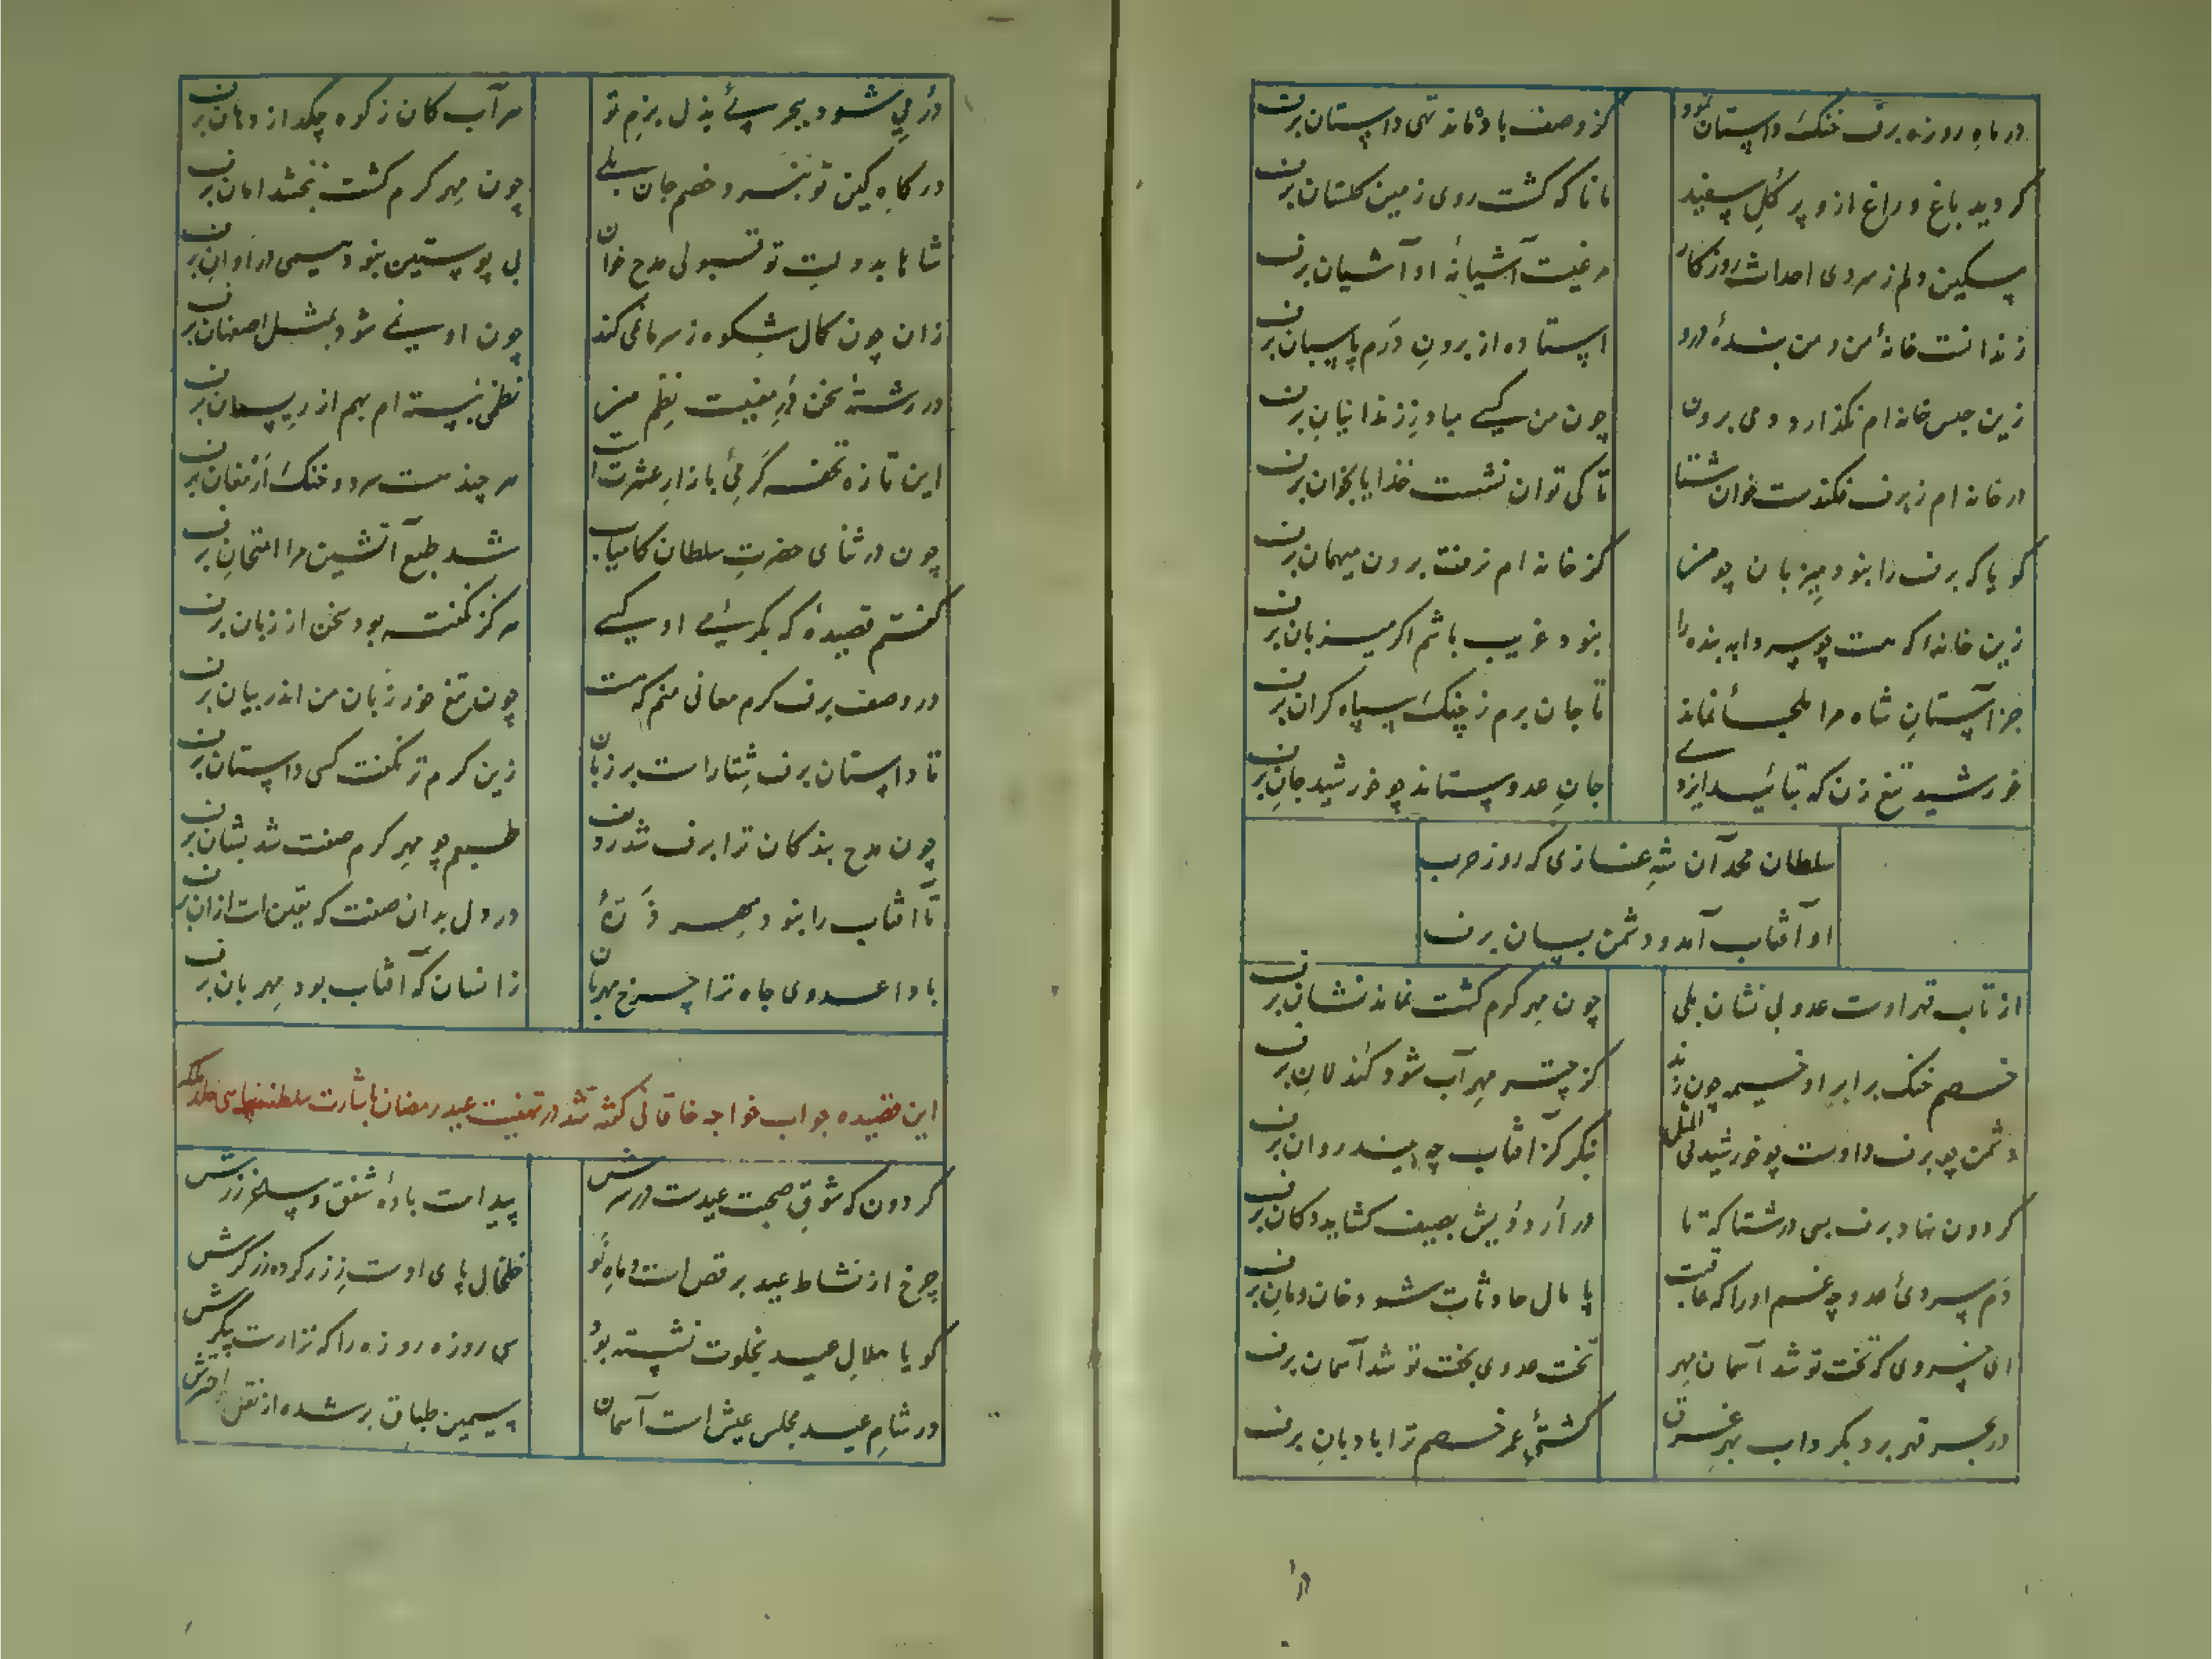 در ماه روزه برف خنک داستان نمود کز وصف باده ماند تهی داستان برف
کردید باغ و راغ ازو پر کل سفید مانا که کشت روی زمین کلستان برف
مسکین دلم ز سردی احداث روزکار مرغیست آشیانهٔ او آشیان برف
زندانست خانهٔ من و من بندهٔ درو استاده از برون درم پاسبان برف
زین حبس خانه ام نکذارد دمی برون چون من کسی مباد ز زندانیان برف
در خانه ام ز برف فکندست خوان شتا تا کی توان نشست خدایا بخوان برف
کویا که برف را بنود میزبان چو من کز خانه ام نرفت برون میهمان برف
زین خانه که هست چو سردابه بنده را بنود غریب باشم اکر میزبان برف
جز آستان شاه مرا ملجأ نماند تا جان برم ز چنک سپاه کران برف
خورشید تیغ زن که بتائید ایزدی جان عدو ستاند چو خورشید جان برف
سلطان محمد آن شه غازی که روز حرب
او آفتاب آمد و دشمن بسان برف
از تاب قهر اوست عدو بی نشان بلی چون مهر کرم کشت نماند نشان برف
خصم خنک برابر او خیمه چون زند کز چشمه مهر آب شود کند لان برف
دشمن چو برف دان و چو خورشید بنکر کز آفتاب چه بیند روان برف
کردون نهاد برف بسی در شتا که تا در اردوئیش بصیف کشاید دکان برف
دم سردئ عدو چه غم او را که عاقبت پا مال حادثات شود خان و مان برف
ای خسروی که تخت تو شد آسمان مهر تخت عدوی بخت تو شد آسمان برف
در بحر قهر برد بکرداب بهر غرق کشتئ عمر خصم ترا بادبان برف
در می شود ببحر پئے بذل بزم تو هر آب کان ز کوه چکد از دهان برف
در کاه کین تو نبرد خصم جان بلے چون مهر کرم کشت نبخشد امان برف
شاها بدولت تو قبولی مدح خوان بی پوستین بنود دمی در اوان برف
زان چون کمال شکوه ز سرما نمی کند چون او نے شود بمثل اصفهان برف
در رشتهٔ سخن در معنیست نظم من نظمی نبسته ام بهم از ریسمان برف
این تازه تحفه کرمئ بازار عشرت است هر چند هست سرد و خنک ارمغان برف
چون در ثنای حضرت سلطان کامیاب شد طبع آتشین مرا امتحان برف
کفتم قصیدهٔ که بکرمئے او کسے هرکز نکفته بود سخن از زبان برف
در وصف برف کرم معانی منم که هست چون تیغ خور زبان من اندر بیان برف
تا داستان برف شتا راست بر زبان زین کرم تر نکفت کسی داستان برف
چون مدح بندکان ترا برف شد ردیف طبعم چو مهر کرم صفت شد بشان برف
تا آفتاب را بنود مهر ذرهٔ در دل بدان صفت که یقین است ازان برف
بادا عدوی جاه ترا چرخ مهربان زانسان که آفتاب بود مهربان برف
این قصیده جواب خواجه خاقانی کفته شد در تهنیت عید رمضان باشارت سلطنت
کردون که شوق صحبت عیدست در سرش پیداست بادهٔ شفق و ساغر زرش
چرخ از نشاط عید برقص است و ماه نو خلخال پای اوست ز زر کرده زرکرش
کویا هلال عید بخلوت نشسته بود سی روزه روزه را که نزارست پیکرش
در شام عید مجلس عیش است آسمان سیمین طباق پر شده از نقل اخترش